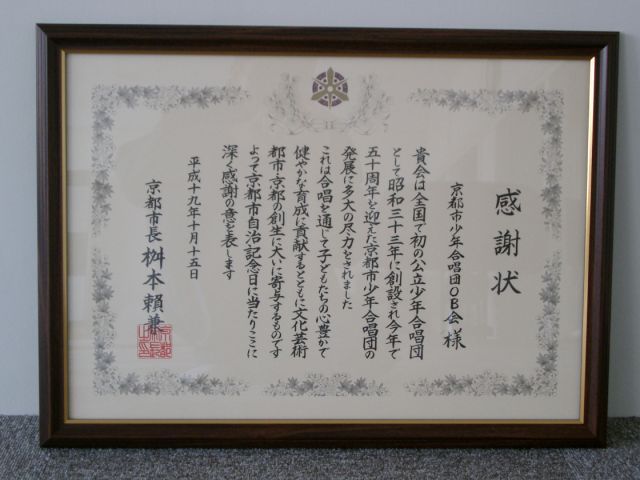 感謝状
京都市少年合唱団OB会様
貴会は全国で初の公立少年合唱団
として昭和三十三年に創設され今年で
五十周年を迎えた京都市少年合唱団の
発展に多大の尽力をされました
これは合唱を通じて子どもたちの心豊かで
健やかな育成に貢献するとともに文化芸術
都市・京都の創生に大いに寄与するものです
よって京都市自治記念日に当たりここに
深く感謝の意を表します
平成十九年十月十五日
京都市長 桝本賴兼